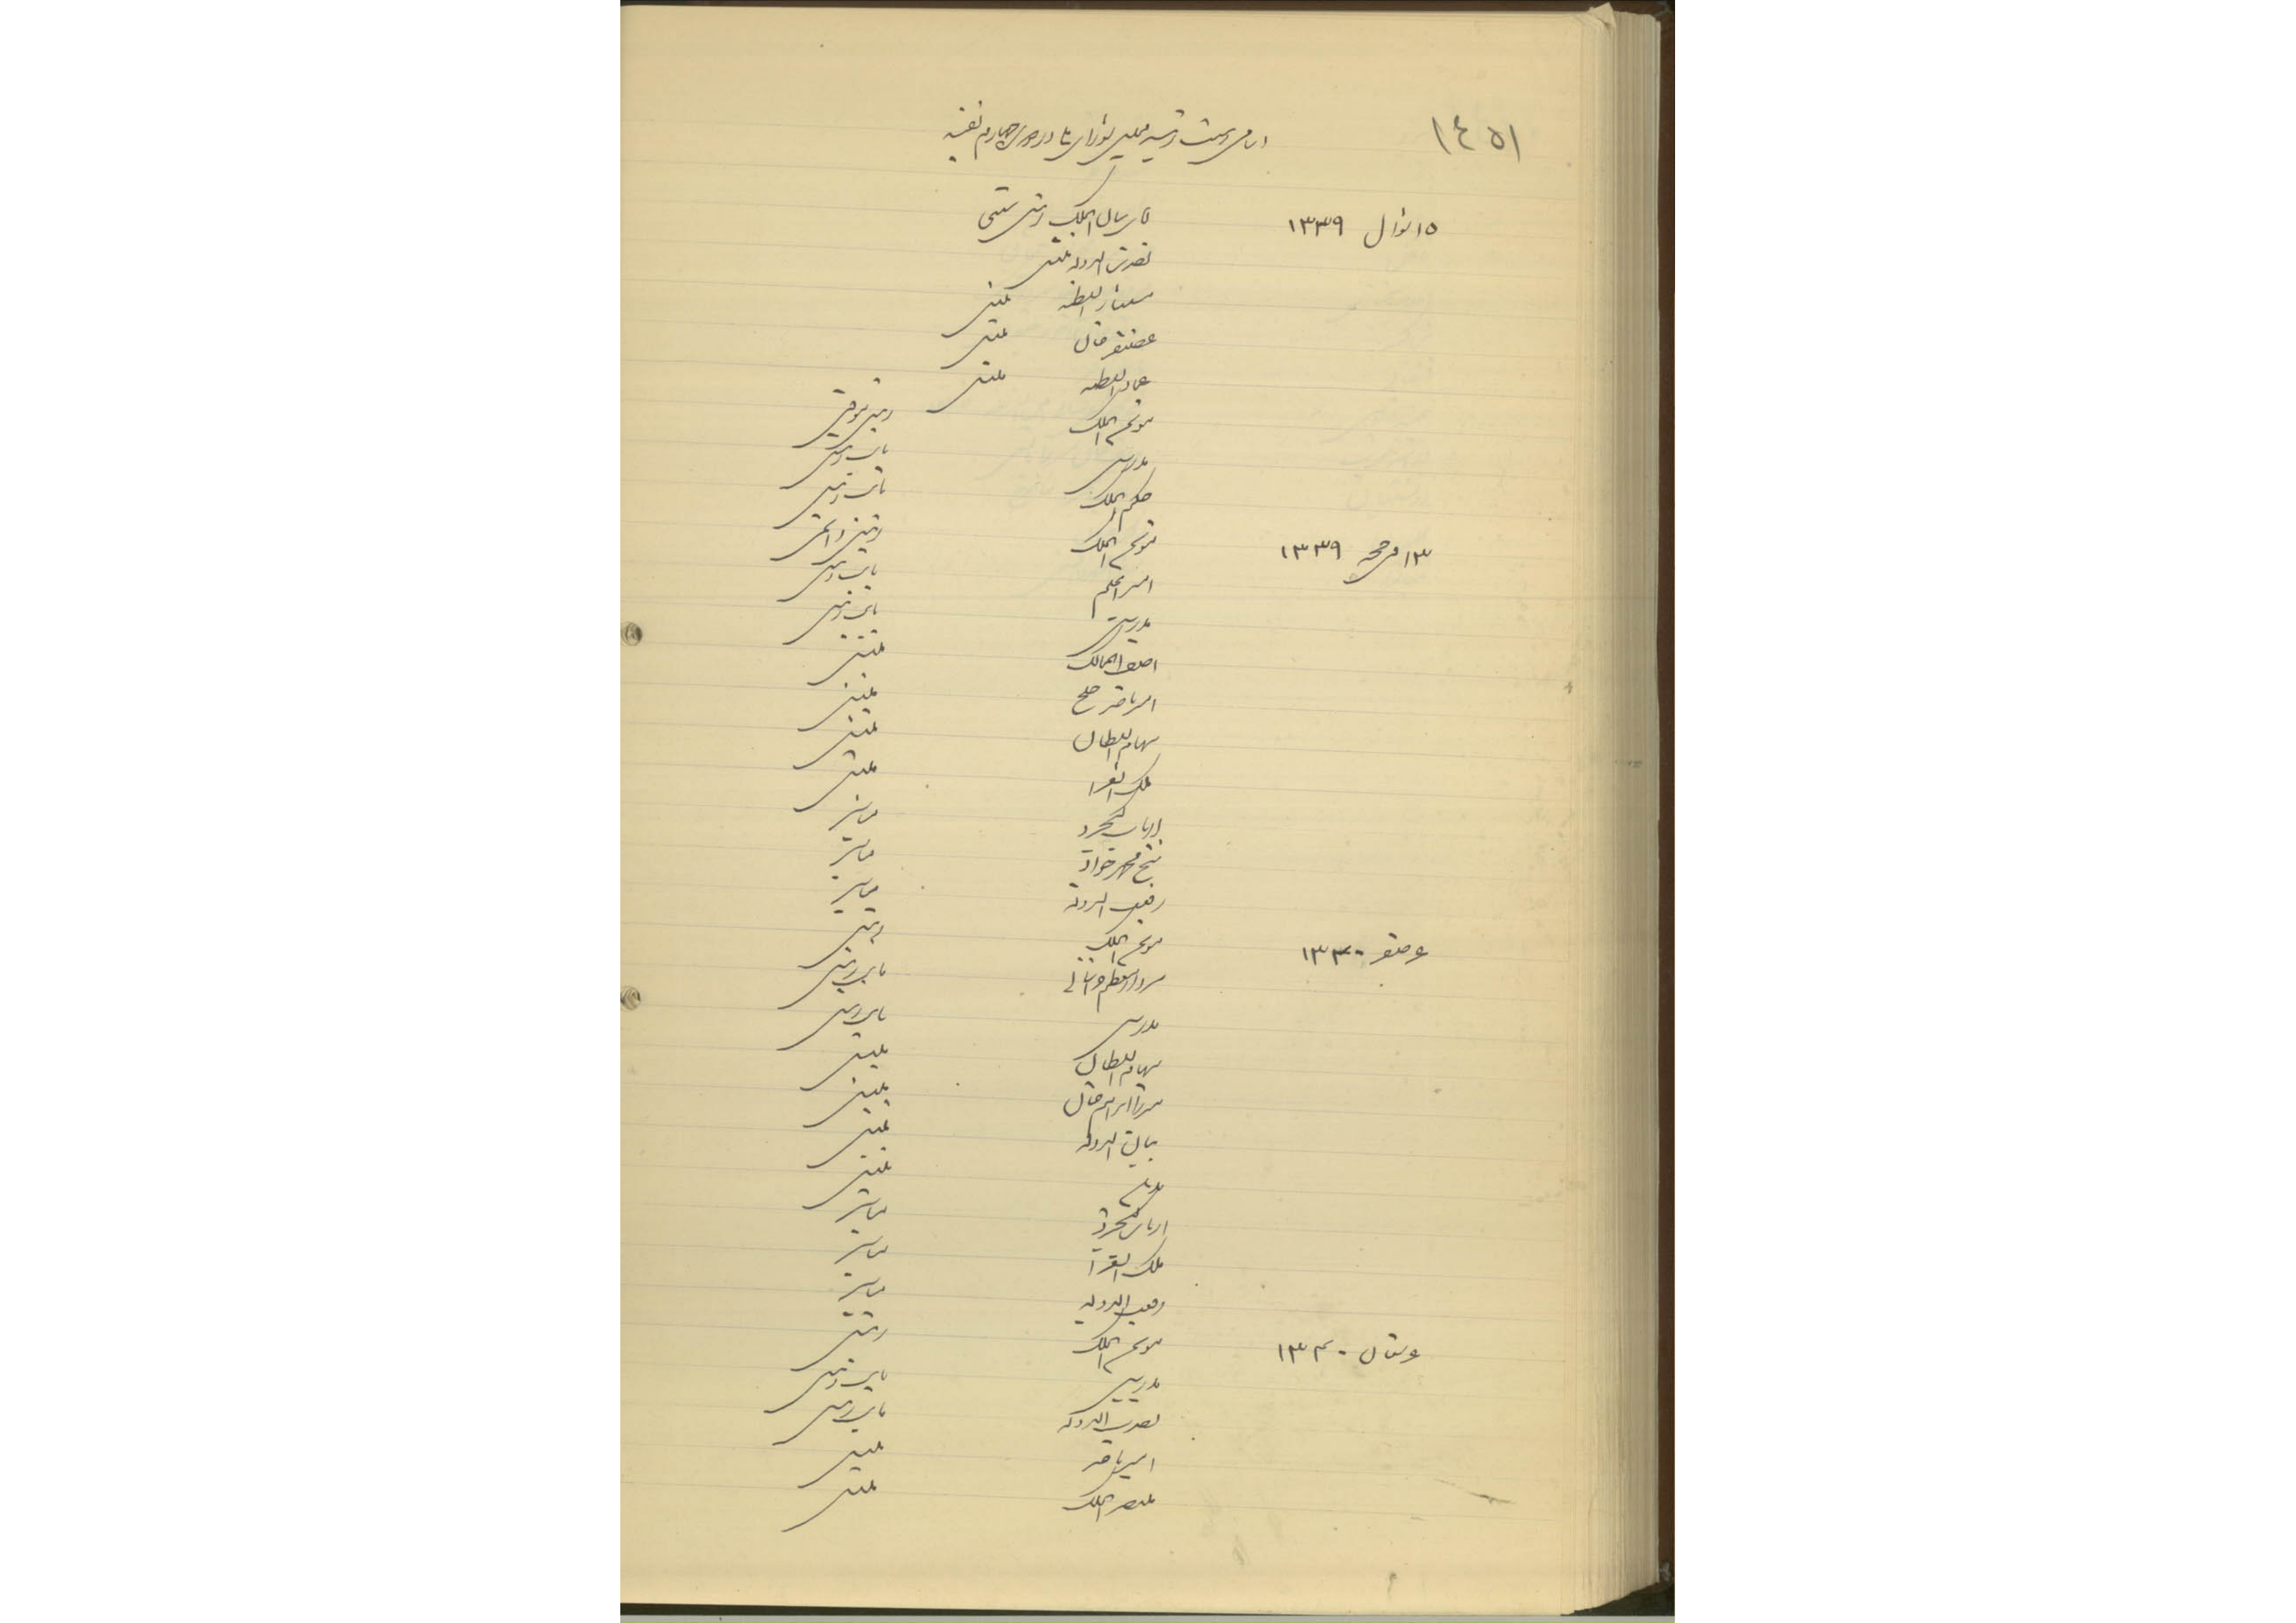 ۱٤۵۱
اسامی هیئت رئیسه مجلس شورای ملی در دوره چهارم تقنینیه
۱۵ شوال ۱۳۳۹ الملک رئیس سنی
نصرت الدوله منشی
السلطنه منشی
غضنفر خان منشی
عماد السلطنه منشی
موتمن الملک رئیس موقتی
مدرس نایب رئیس
حکیم الملک نایب رئیس
۱۳ ذی حجه ۱۳۳۹ موتمن الملک رئیس دائمی
امیر اعلم نایب رئیس
مدرس نایب رئیس
آصف الممالک منشی
امیر ناصر خلج منشی
سهام السلطان منشی
ملک الشعرا منشی
ارباب کیخسرو مباشر
شیخ محمد جواد مباشر
رفعت الدوله مباشر
صفر ۱۳۴۰ موتمن الملک رئیس
سردار معظم خراسانی نایب رئیس
مدرس نایب رئیس
سهام السلطان منشی
میرزا ابراهیم خان منشی
بیان الدوله منشی
منشی
ارباب کیخسرو مباشر
ملک الشعرا مباشر
رفعت الدوله مباشر
شعبان ۱۳۴۰ موتمن الملک رئیس
مدرس نایب رئیس
نصرت الدوله نایب رئیس
امیر ناصر منشی
منتصر الملک منشی